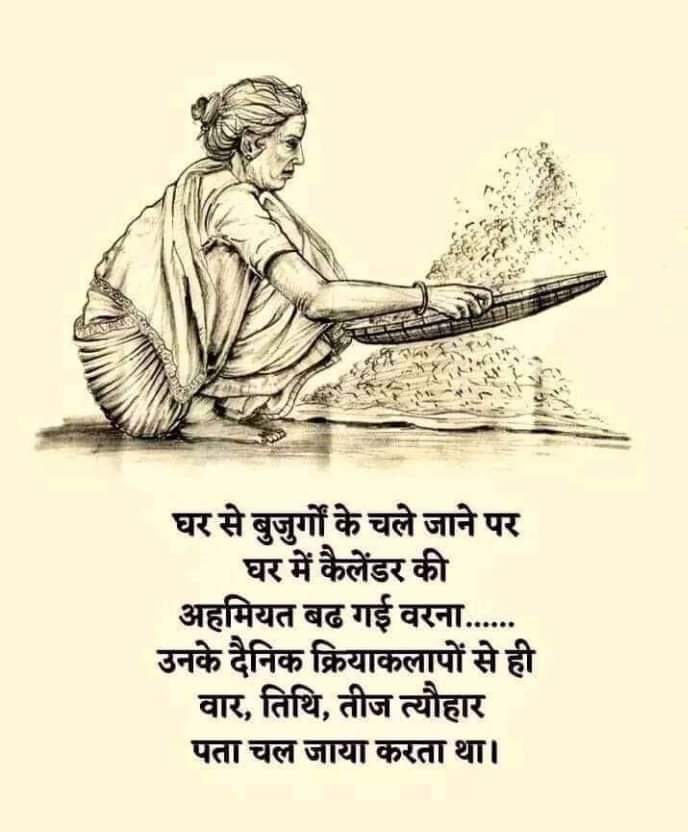 घर से बुजुर्गों के चले जाने पर
घर में कैलेंडर की
अहमियत बढ गई वरना......
उनके दैनिक क्रियाकलापों से ही
वार, तिथि, तीज त्यौहार
पता चल जाया करता था।